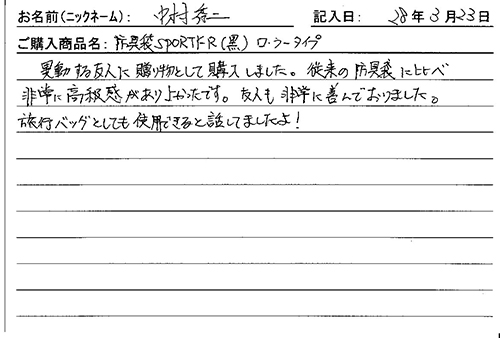 お名前(ニックネーム): 中村 秀二 記入日: 28年3月23日
ご購入商品名: 防具袋SPORTFR(黒) ローラータイプ
異動する友人に贈り物として購入しました。従来の防具袋に比べ
非常に高級感がありよかったです。友人も非常に喜んでおりました。
旅行バッグとしても使用できると話してましたよ!